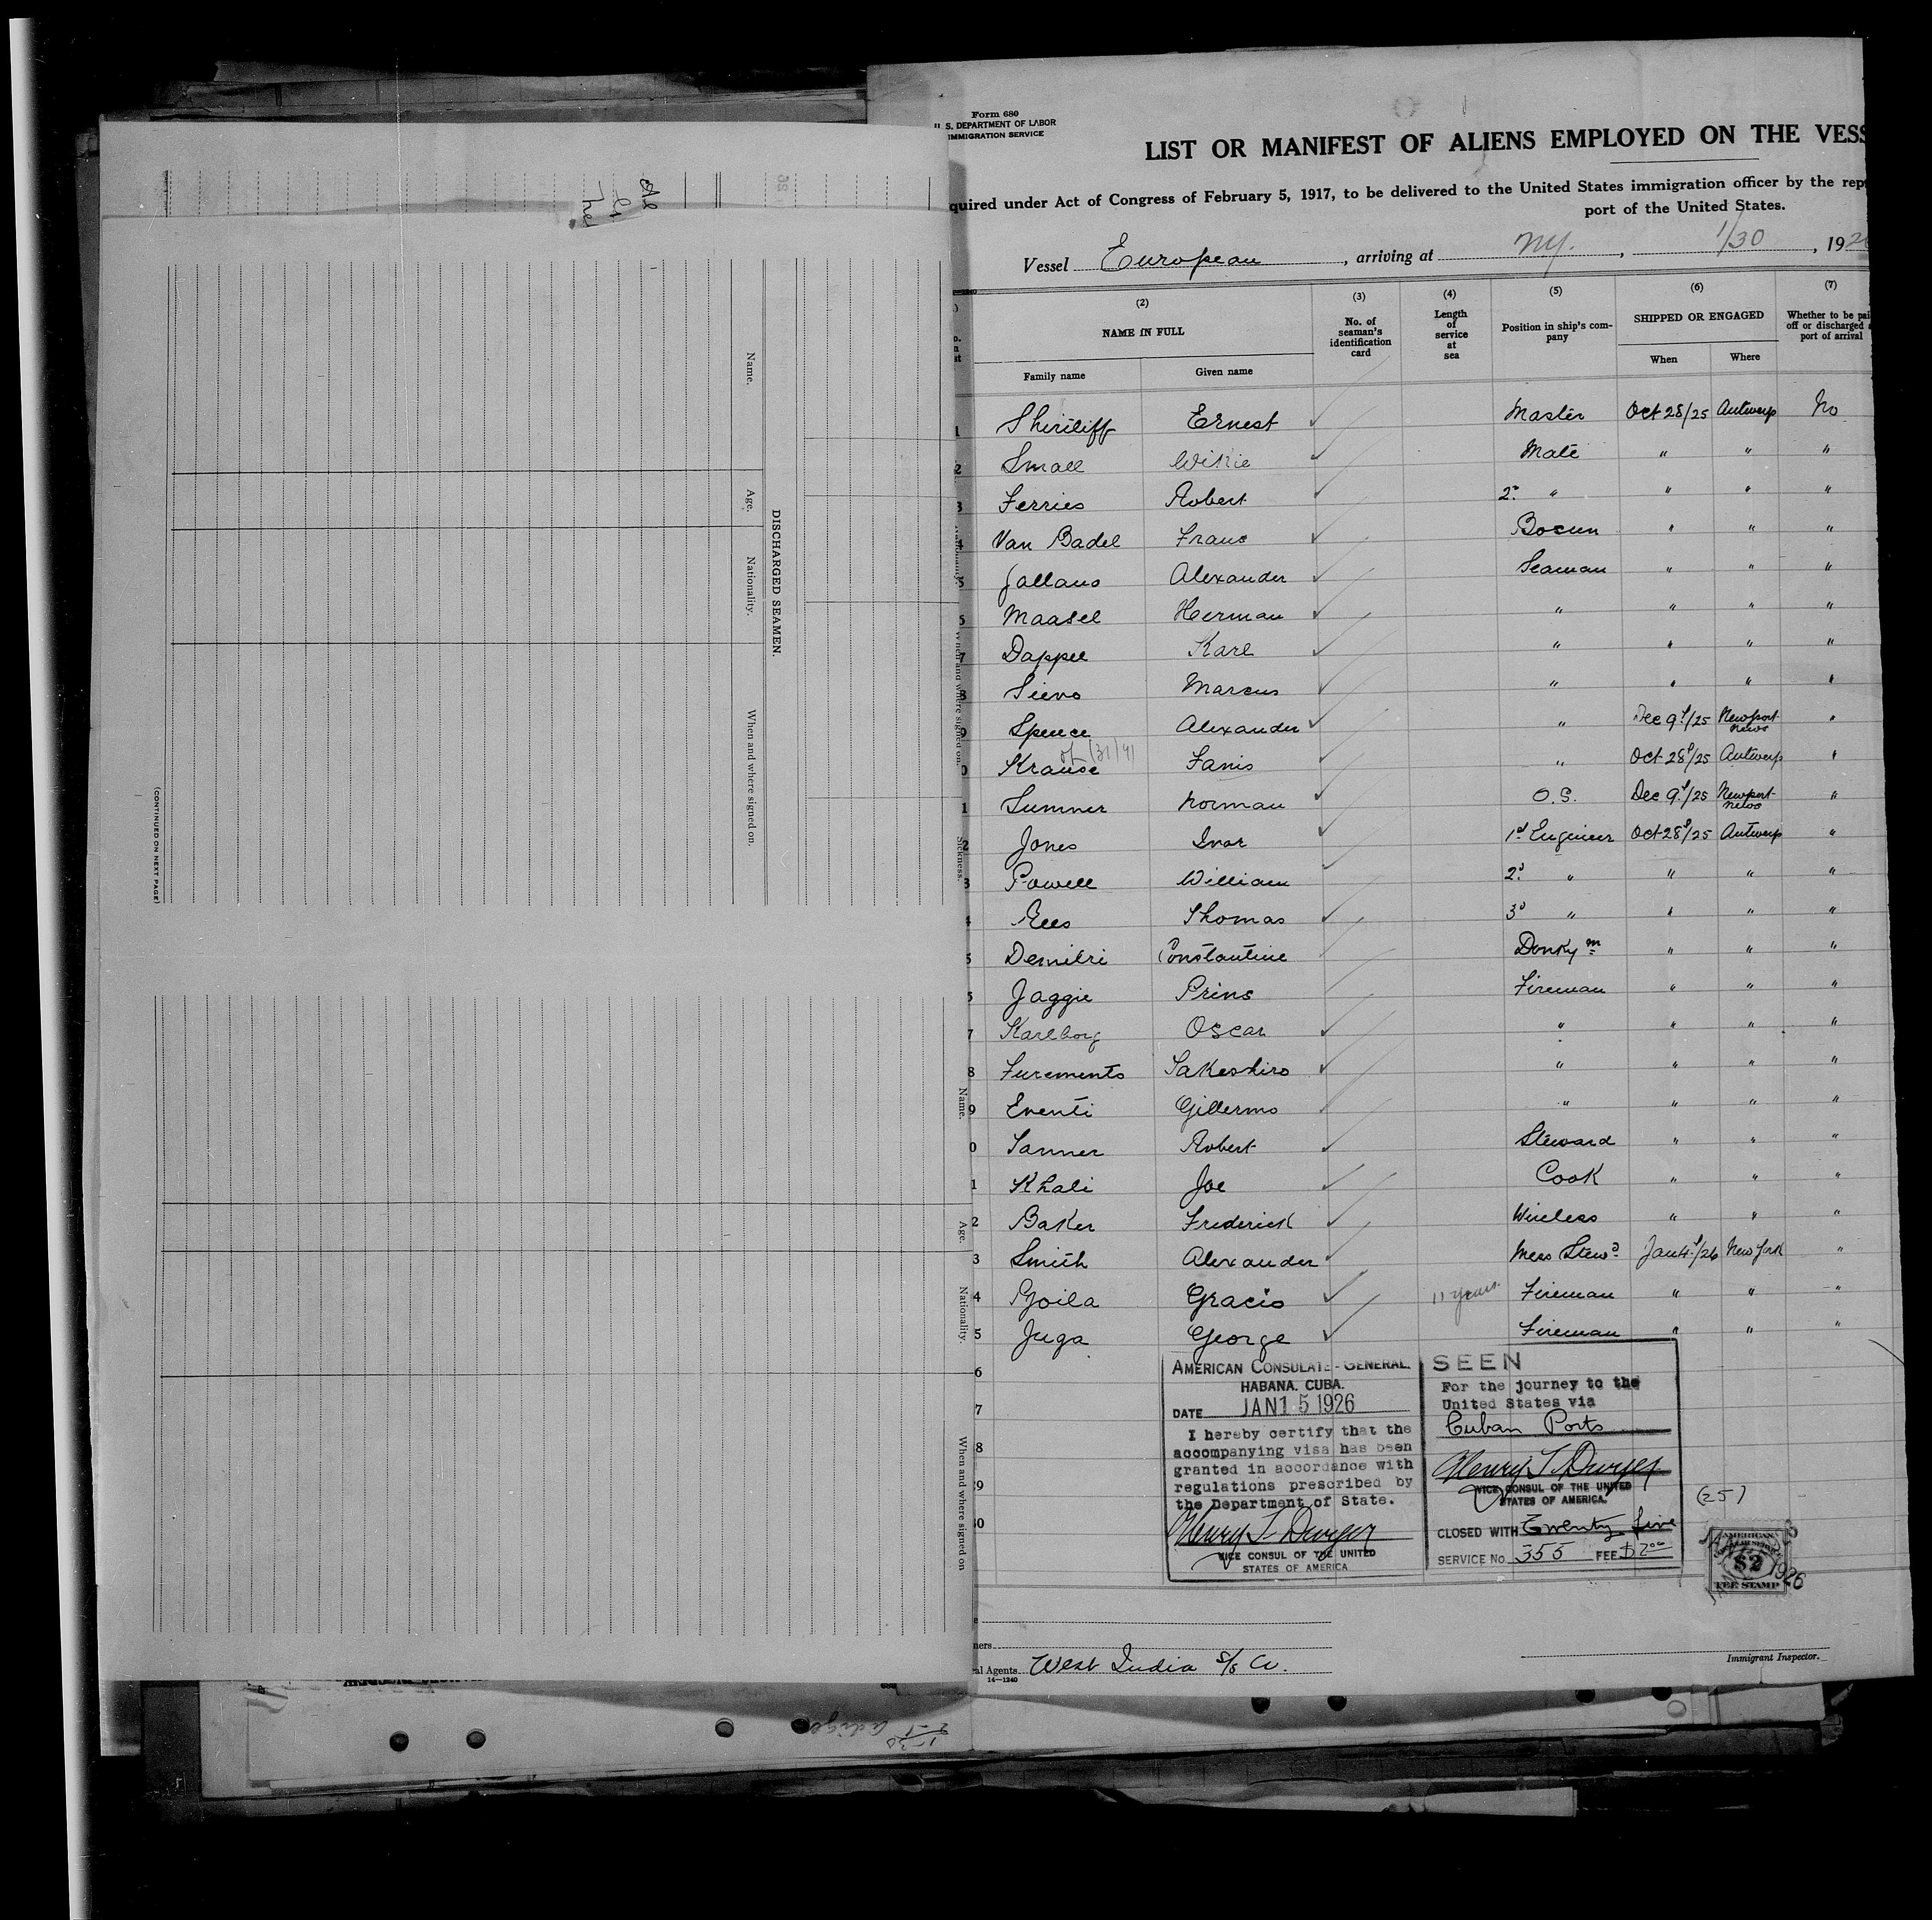 Form 680
U. S. DEPARTMENT OF LABOR
IMMIGRATION SERVICE
LIST OR MANIFEST OF ALIENS EMPLOYED ON THE VESS
quired under Act of Congress of February 5, 1917, to be delivered to the United States immigration officer by the rep
port of the United States.
Vessel European, arriving at N.Y., 1/30, 192
(2) (3) (4) (5) (6) (7)
NAME IN FULL
No. of seaman's identification card
Length of service at sea
Position in ship's company
SHIPPED OR ENGAGED
Whether to be pai off or discharged a port of arrival
Family name Given name When Where
1 Shirtliff Ernest ✓ Master Oct 28/25 Antwerp No
2 Small Wilkie ✓ Mate " " "
3 Ferries Robert ✓ 2d " " " "
4 Van Badel Franc ✓ Bosun " " "
5 Jallans Alexander ✓ Seaman " " "
6 Maasel Herman ✓ " " " "
7 Dappel Karl ✓ " " " "
8 Sievo Marcus ✓ " " " "
9 Spence Alexander ✓ " Dec 9/25 Newport News "
0 Krause Fanis ✓ " Oct 28/25 Antwerp "
1 Sumner Norman ✓ O.S. Dec 9/25 Newport News "
2 Jones Ivor ✓ 1st Engineer Oct 28/25 Antwerp "
3 Powell William ✓ 2d " " " "
4 Rees Thomas ✓ 3d " " " "
5 Demitri Constantine ✓ Donkym " " "
6 Jaggie Prins Fireman " " "
7 Karlborg Oscar ✓ " " " "
8 Furements Takeshiro ✓ " " " "
9 Eventi Gillermo ✓ " " " "
0 Tanner Robert ✓ Steward " " "
1 Khali Joe ✓ Cook " " "
2 Baker Frederick ✓ Wireless " " "
3 Smith Alexander ✓ Mess Stewd Jan 4/26 New York "
4 Gracio ✓ 11 years Fireman " " "
5 Juga George ✓ Fireman " " "
6
7
8
9
30
AMERICAN CONSULATE-GENERAL.
HABANA. CUBA.
DATE JAN 15 1926
I hereby certify that the
accompanying visa has been
granted in accordance with
regulations prescribed by
the Department of State.
Henry T. Dwyer
VICE CONSUL OF THE UNITED
STATES OF AMERICA
SEEN
For the journey to the
United States via
Cuban Ports
Henry T. Dwyer
VICE CONSUL OF THE UNITED
STATES OF AMERICA.
CLOSED WITH Twenty five
SERVICE No. 355 FEE $2.00
(25)
AMERICAN
$2
FEE STAMP
1926
ners
al Agents West India S/S Co.
14—1240
Immigrant Inspector.
DISCHARGED SEAMEN.
Name.
Age.
Nationality.
When and where signed on.
(CONTINUED ON NEXT PAGE)
When and where signed on.
Sickness.
Name.
Age.
Nationality.
When and where signed on